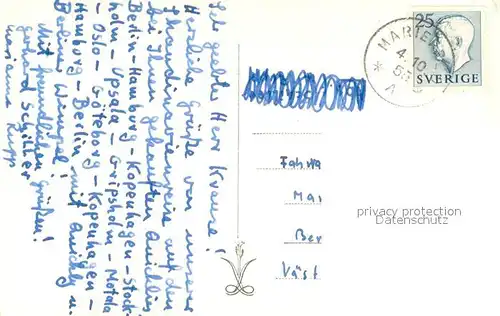 Sehr geehrter Herr Krause!
Herzliche Grüße von unserer
Skandinavienreise auf den
bei Ihnen gekauften Quicklis
Berlin-Hamburg-Kopenhagen-Stock-
holm-Upsala-Gripsholm-Motala
-Oslo-Göteborg-Kopenhagen-
Hamburg-Berlin mit Quickly u.
Berliner Wimpel!
Mit freundlichen Grüßen!
Gerhard Schiller
Marianne
25
SVERIGE
MARIE
4.10
Fahrra
Mai
Ber
Väst
privacy protection
DATENSCHUTZ